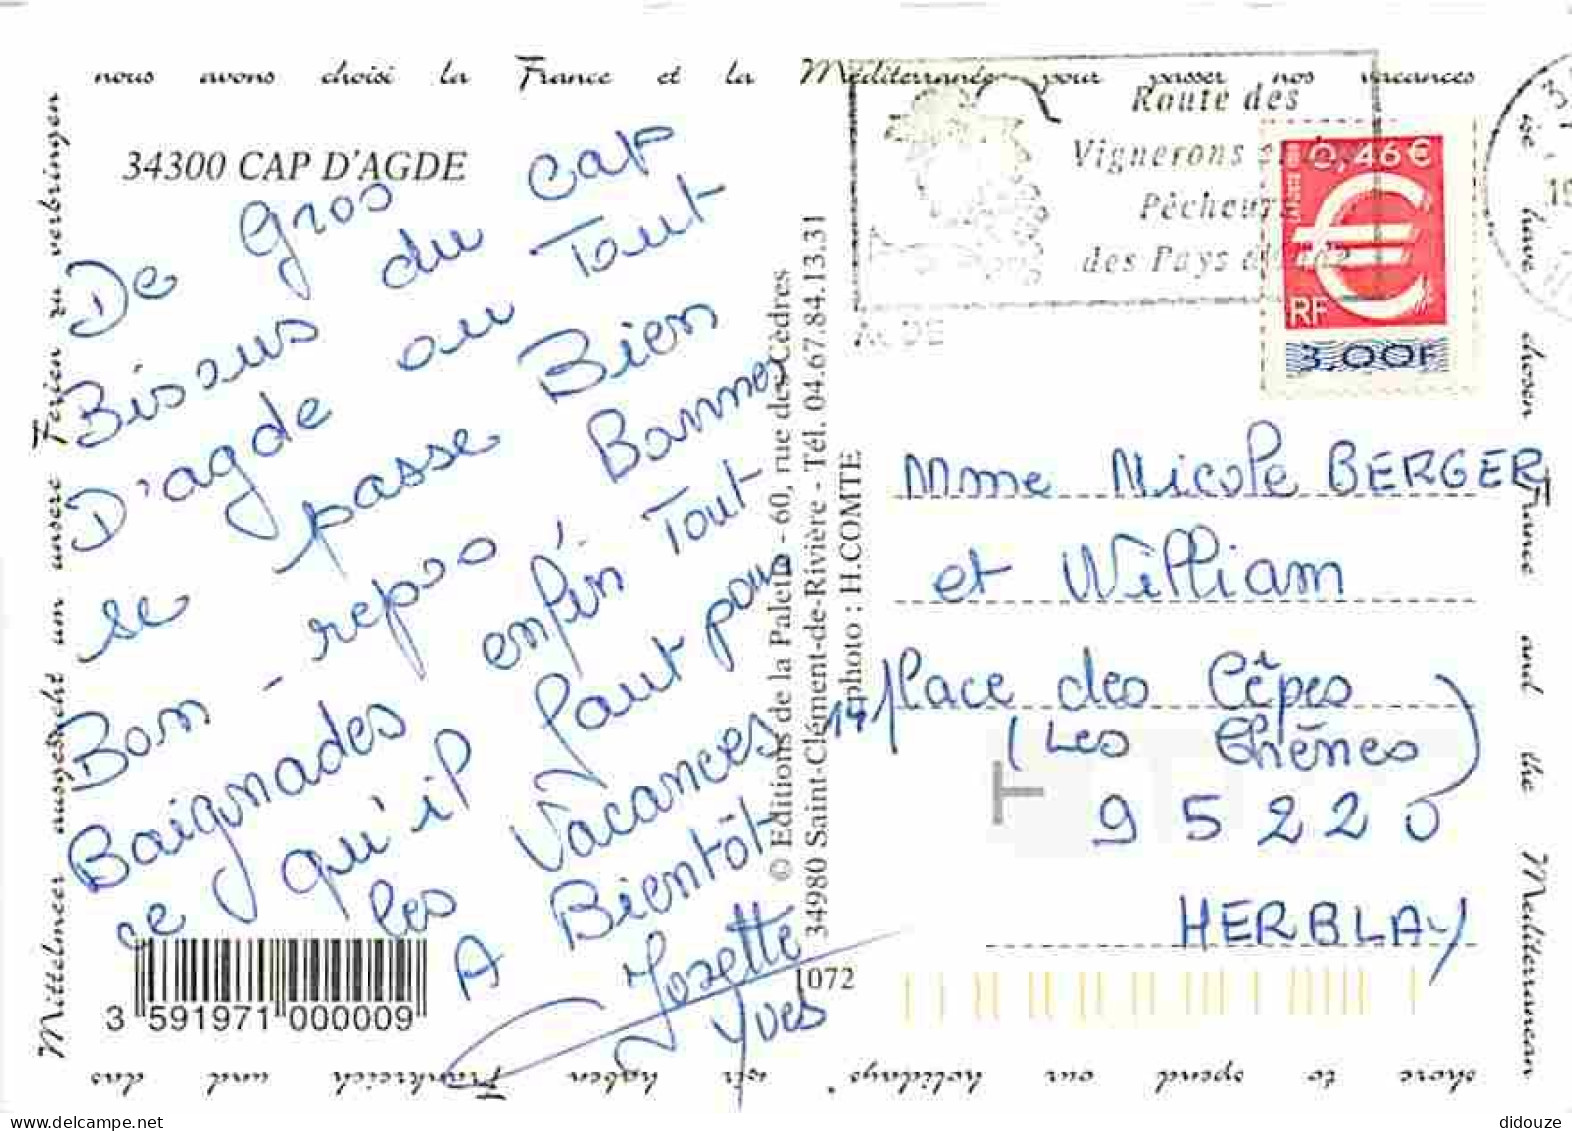 nous avons choisi la France et la Méditerranée pour passer nos vacances
34300 CAP D'AGDE
De Gros
Bisous du Cap
D'agde ou Tout
se passe Bien
Bon - repro Bonnes
Baignades enfin Tout
ce qu'il faut pour
les Vacances
A Bientôt
Josette
Yves
3 591971 000009
1072
© Editions de la Palette - 60, rue des Cèdres
34980 Saint-Clément-de-Rivière - Tél. 04.67.84.13.31
photo : H.COMTE
Route des
Vignerons
Pêcheurs
des Pays
AGDE
0,46 €
LA POSTE
RF
3,00F
Mme Nicole BERGER
et William
14 place des Cêpes
(Les Chênes)
95220
HERBLAY
we have chosen France and the Mediterranean
shore to spend our holidays.
wir haben Frankreich und das
Mittelmeer ausgesucht um unsere Ferien zu verbringen
didouze